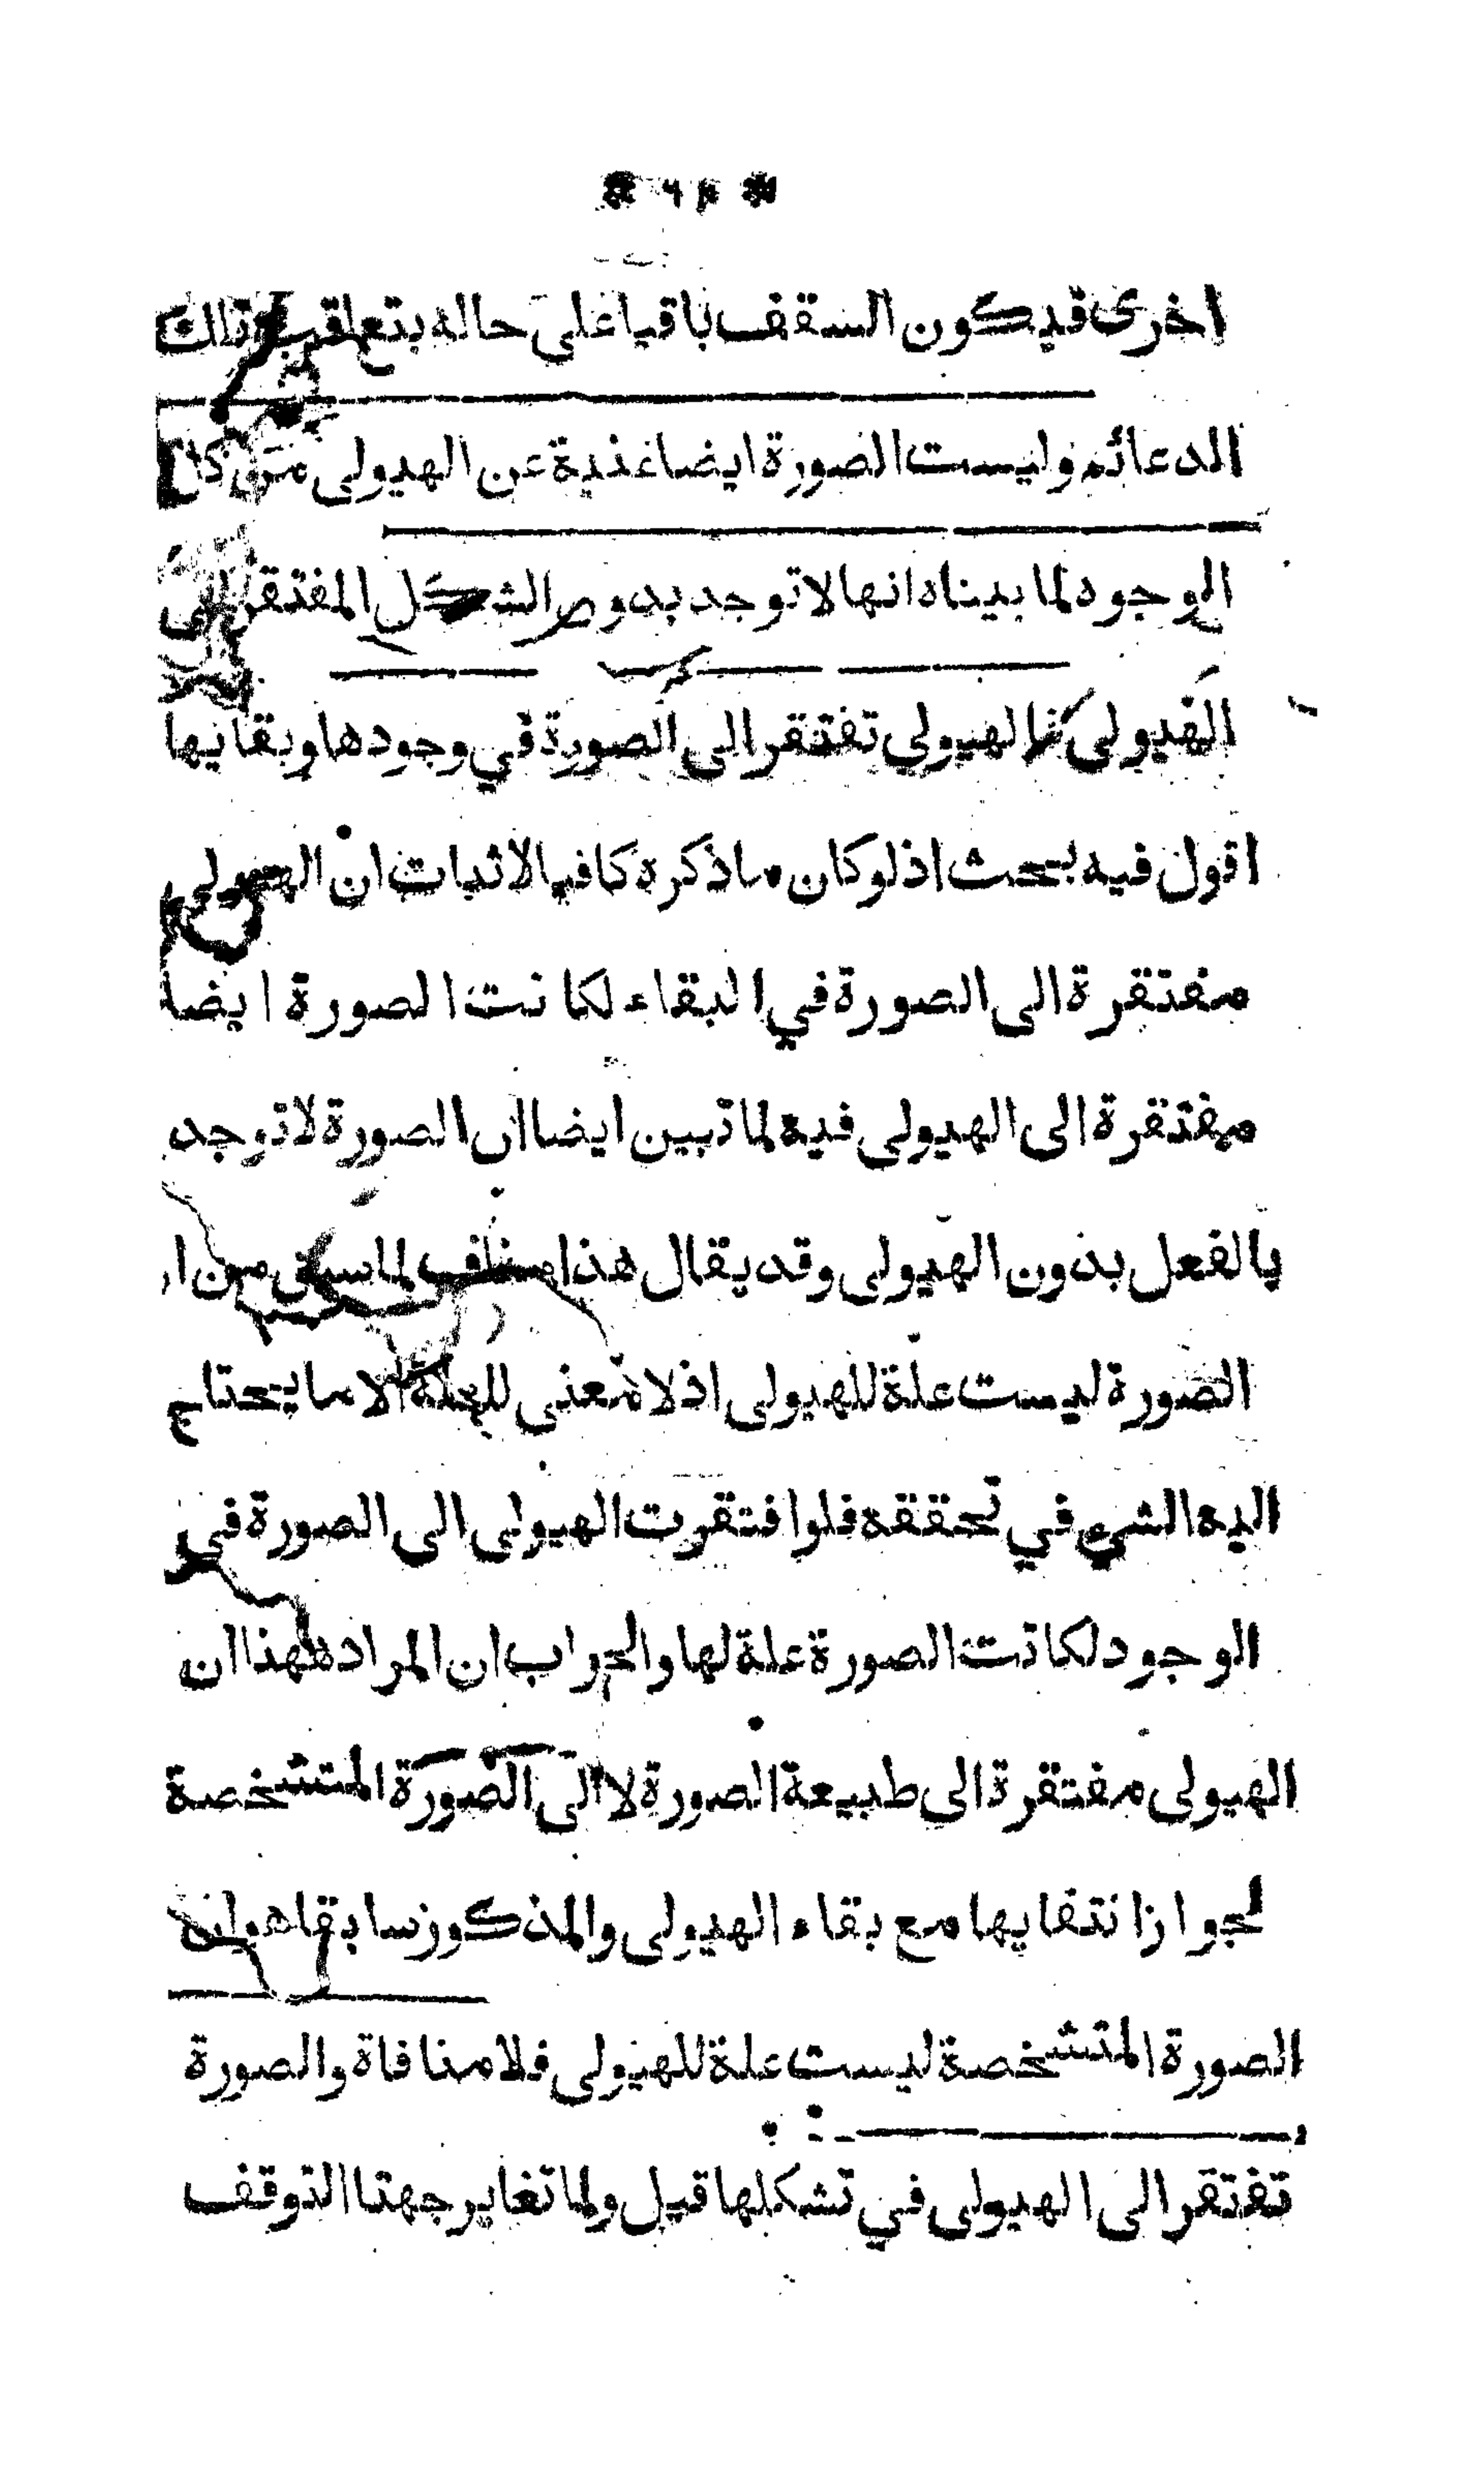 اخرى فيكون السقف باقيا على حاله بتعاقب تلك
الدعائم وليست الصورة ايضا غنية عن الهيولى من كل
الوجوه لما بيناه انها لا توجد بدون الشكل المفتقر الى
الهيولى فالهيولي تفتقر الى الصورة في وجودها وبقايها
اقول فيه بحث اذ لو كان ما ذكره كافيا لاثبات ان الهيولى
مفتقرة الى الصورة في البقاء لكانت الصورة ايضا
مفتقرة الى الهيولى فيه لما تبين ايضا ان الصورة لا توجد
بالفعل بدون الهيولى وقد يقال هذا مناف لما سبق من ا
الصورة ليست علة للهيولى اذ لا معنى للعلة الا ما يحتاج
اليه الشيء في تحققه فلو افتقرت الهيولى الى الصورة في
الوجود لكانت الصورة علة لها والجواب ان المراد ههنا ان
الهيولى مفتقرة الى طبيعة الصورة لا الى الصورة المتشخصة
لجواز انتفايها مع بقاء الهيولى والمذكور سابقا هو ان
الصورة المتشخصة ليست علة للهيولى فلا منافاة والصورة
تفتقر الى الهيولى في تشكلها قيل ولما تغاير جهتا التوقف